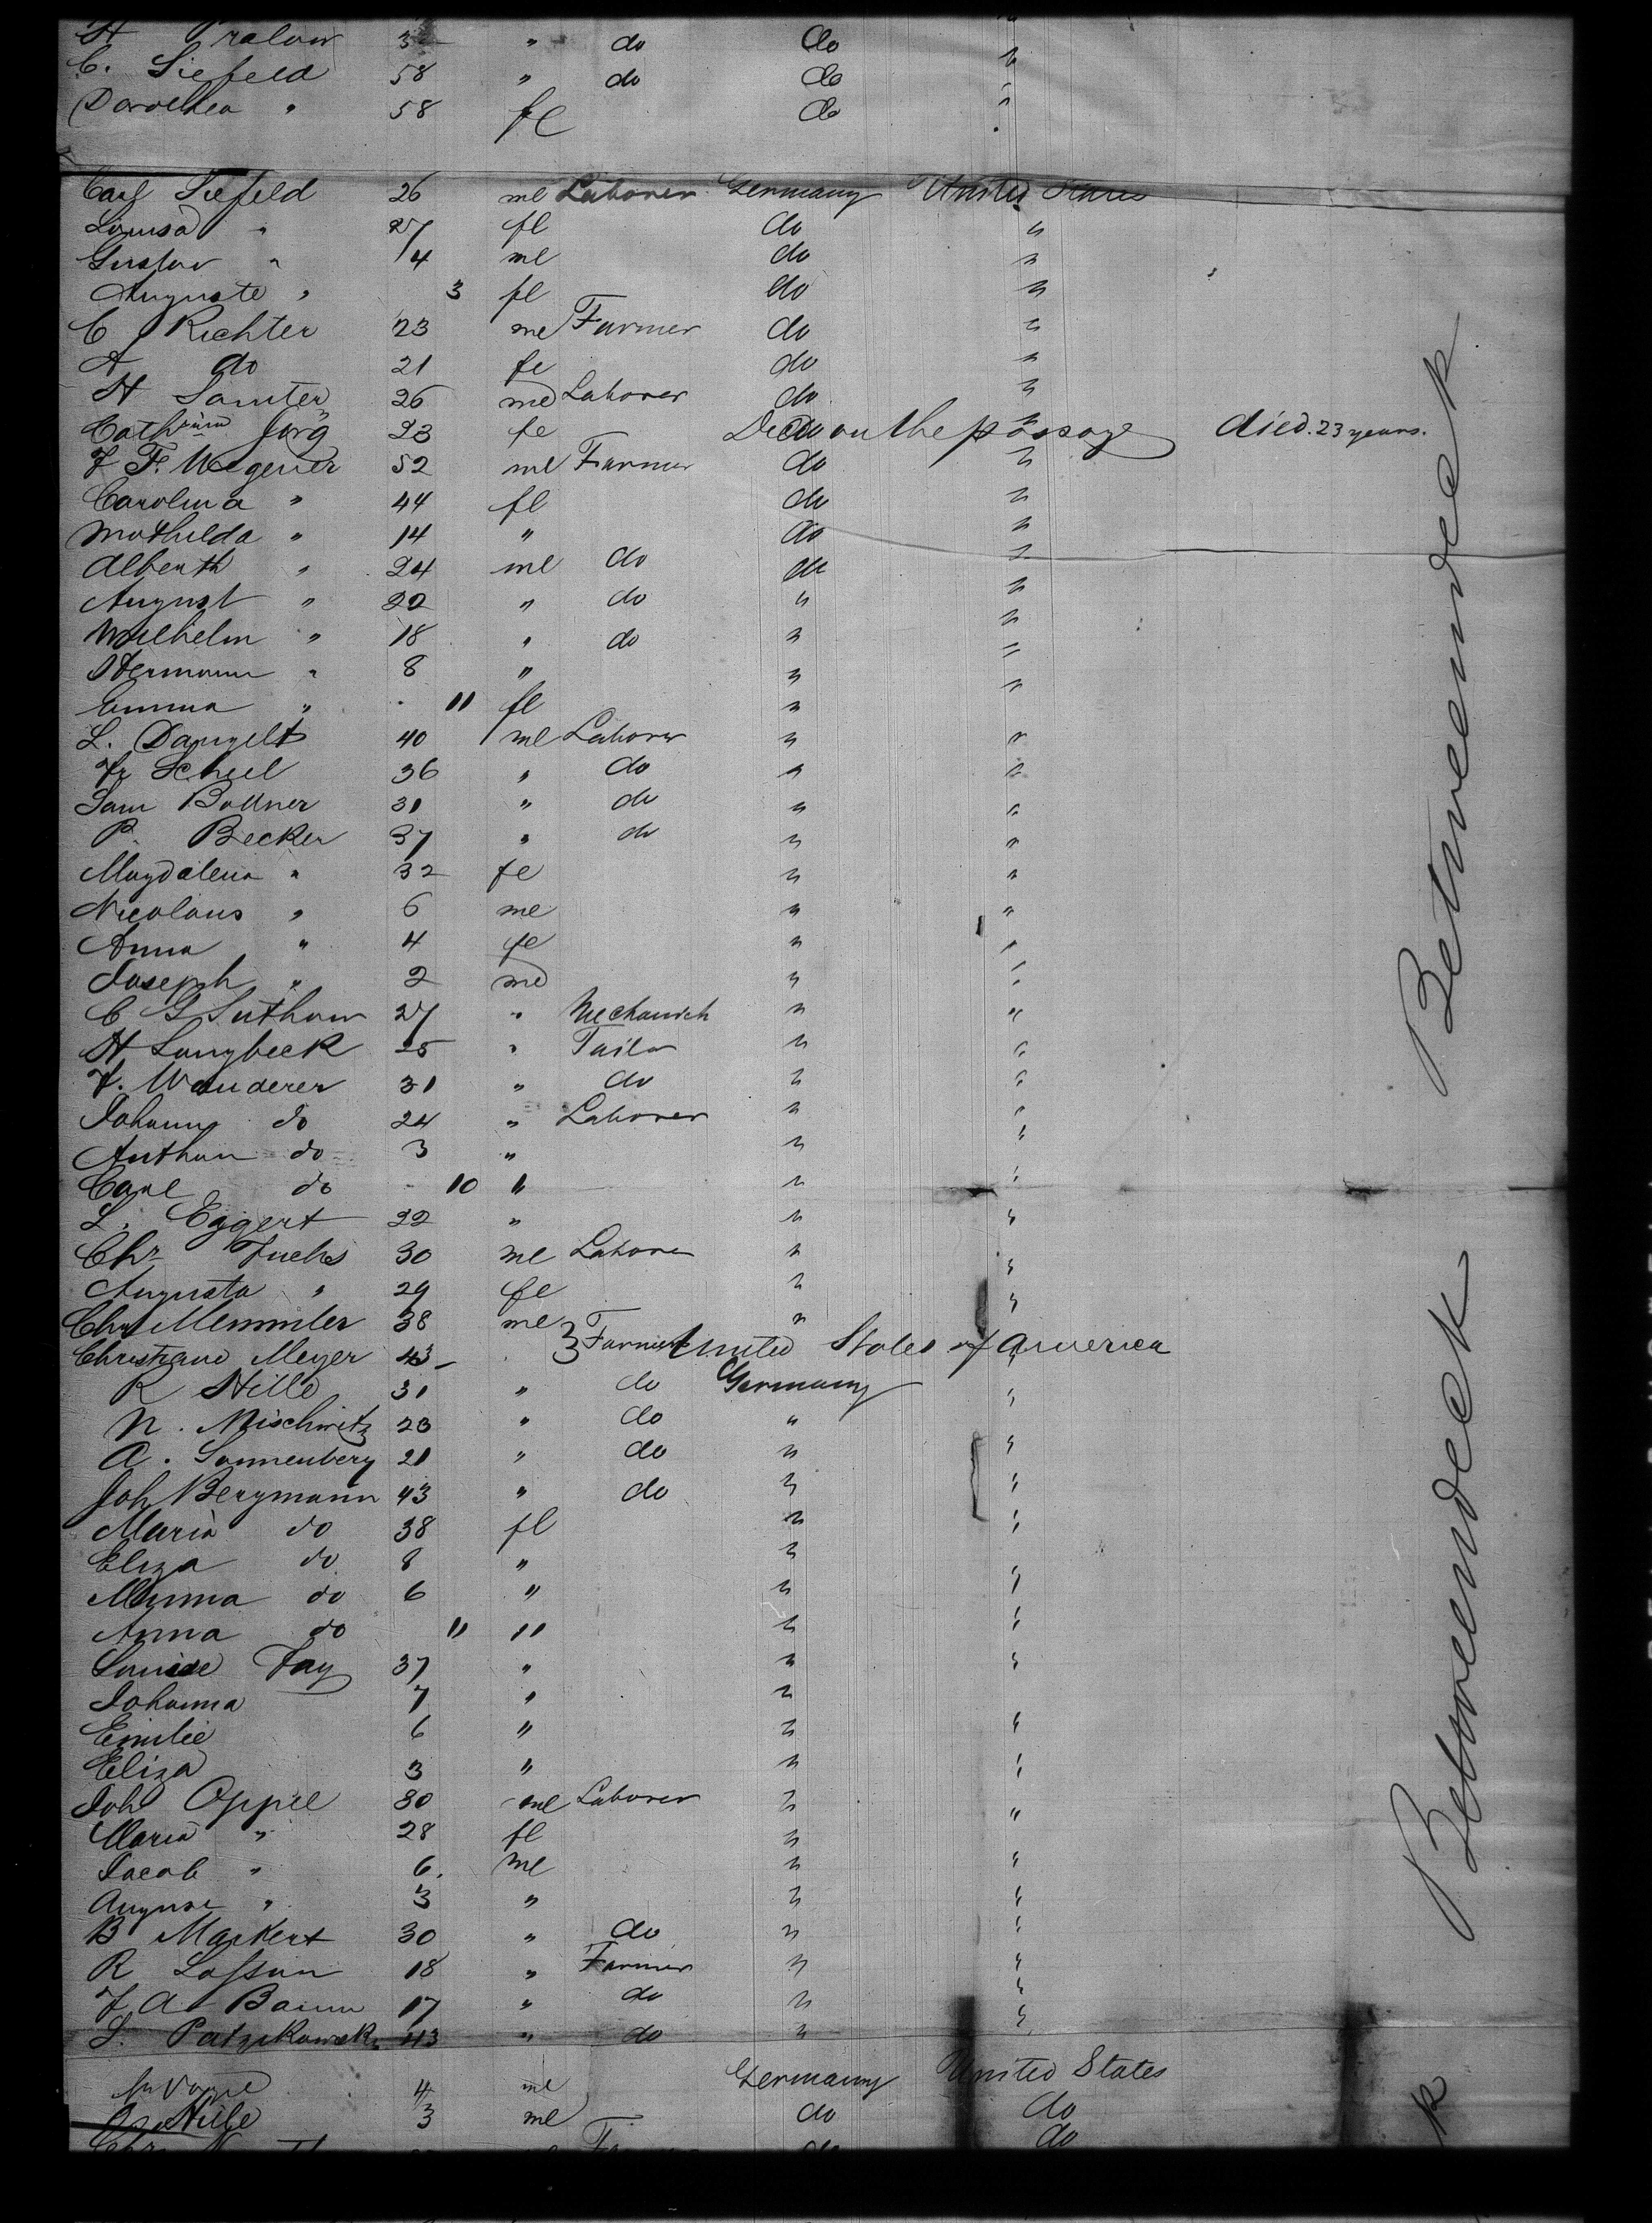 H Pralow 3 " do do "
C. Siefeld 58 " do do "
Dorothea " 58 fe do "
Carl Tiefeld 26 ml Laborer Germany United States
Louisa " 27 fl do "
Gustav " 4 ml do "
Auguste " 3 fl do "
C Richter 23 ml Farmer do "
A do 21 fe do "
H Samter 26 ml Laborer do "
Catharina Jorg 23 fe Died on the passage died. 23 years.
F Fr Wegener 52 ml Farmer do "
Carolina " 44 fl do "
Mathilda " 14 " do "
Alberth " 24 ml do do "
August " 22 " do " "
Wilhelm " 18 " do " "
Hermann " 8 " " "
Emma " 11 fl " "
L. Dangelt 40 ml Laborer " "
Fr Scheel 36 " do " "
Sam Bollner 31 " do " "
P. Becker 37 " do " "
Magdalena " 32 fe " "
Nicolaus " 6 ml " "
Anna " 4 fe " "
Joseph " 2 ml " "
C G Suthow 27 " Mechanich " "
H Langbeck 25 " Tailor " "
F. Wanderer 31 " do " "
Johann do 24 " Laborer " "
Anthon do 3 " " "
Carl do 10 " " "
L. Eggert 22 " " "
Chr Fuchs 30 ml Laborer " "
Augusta " 29 fe " "
Chr Memmler 38 ml " "
Christiane Meyer 43 Farmer United States of America
R Hille 31 " do Germany "
N. Mischwitz 23 " do " "
A. Sonnenberg 21 " do " "
Joh Bergmann 43 " do " "
Maria do 38 fl " "
Eliza do 8 " " "
Minna do 6 " " "
Anna do 11 " " "
Louise Fay 37 " " "
Johanna 7 " "
Emilie 6 " " "
Eliza 3 " " "
Joh Oppel 30 ml Laborer " "
Maria " 28 fl "
Jacob " 6. ml " "
August " 3 " " "
B Markert 30 " do " "
R Lassun 18 " Farmer " "
F A Baum 17 " do " "
L. Patzikowsk 43 " do " "
4 ml Germany United States
Hille 3 ml do do
do do
Betweendeck
Betweendeck
k